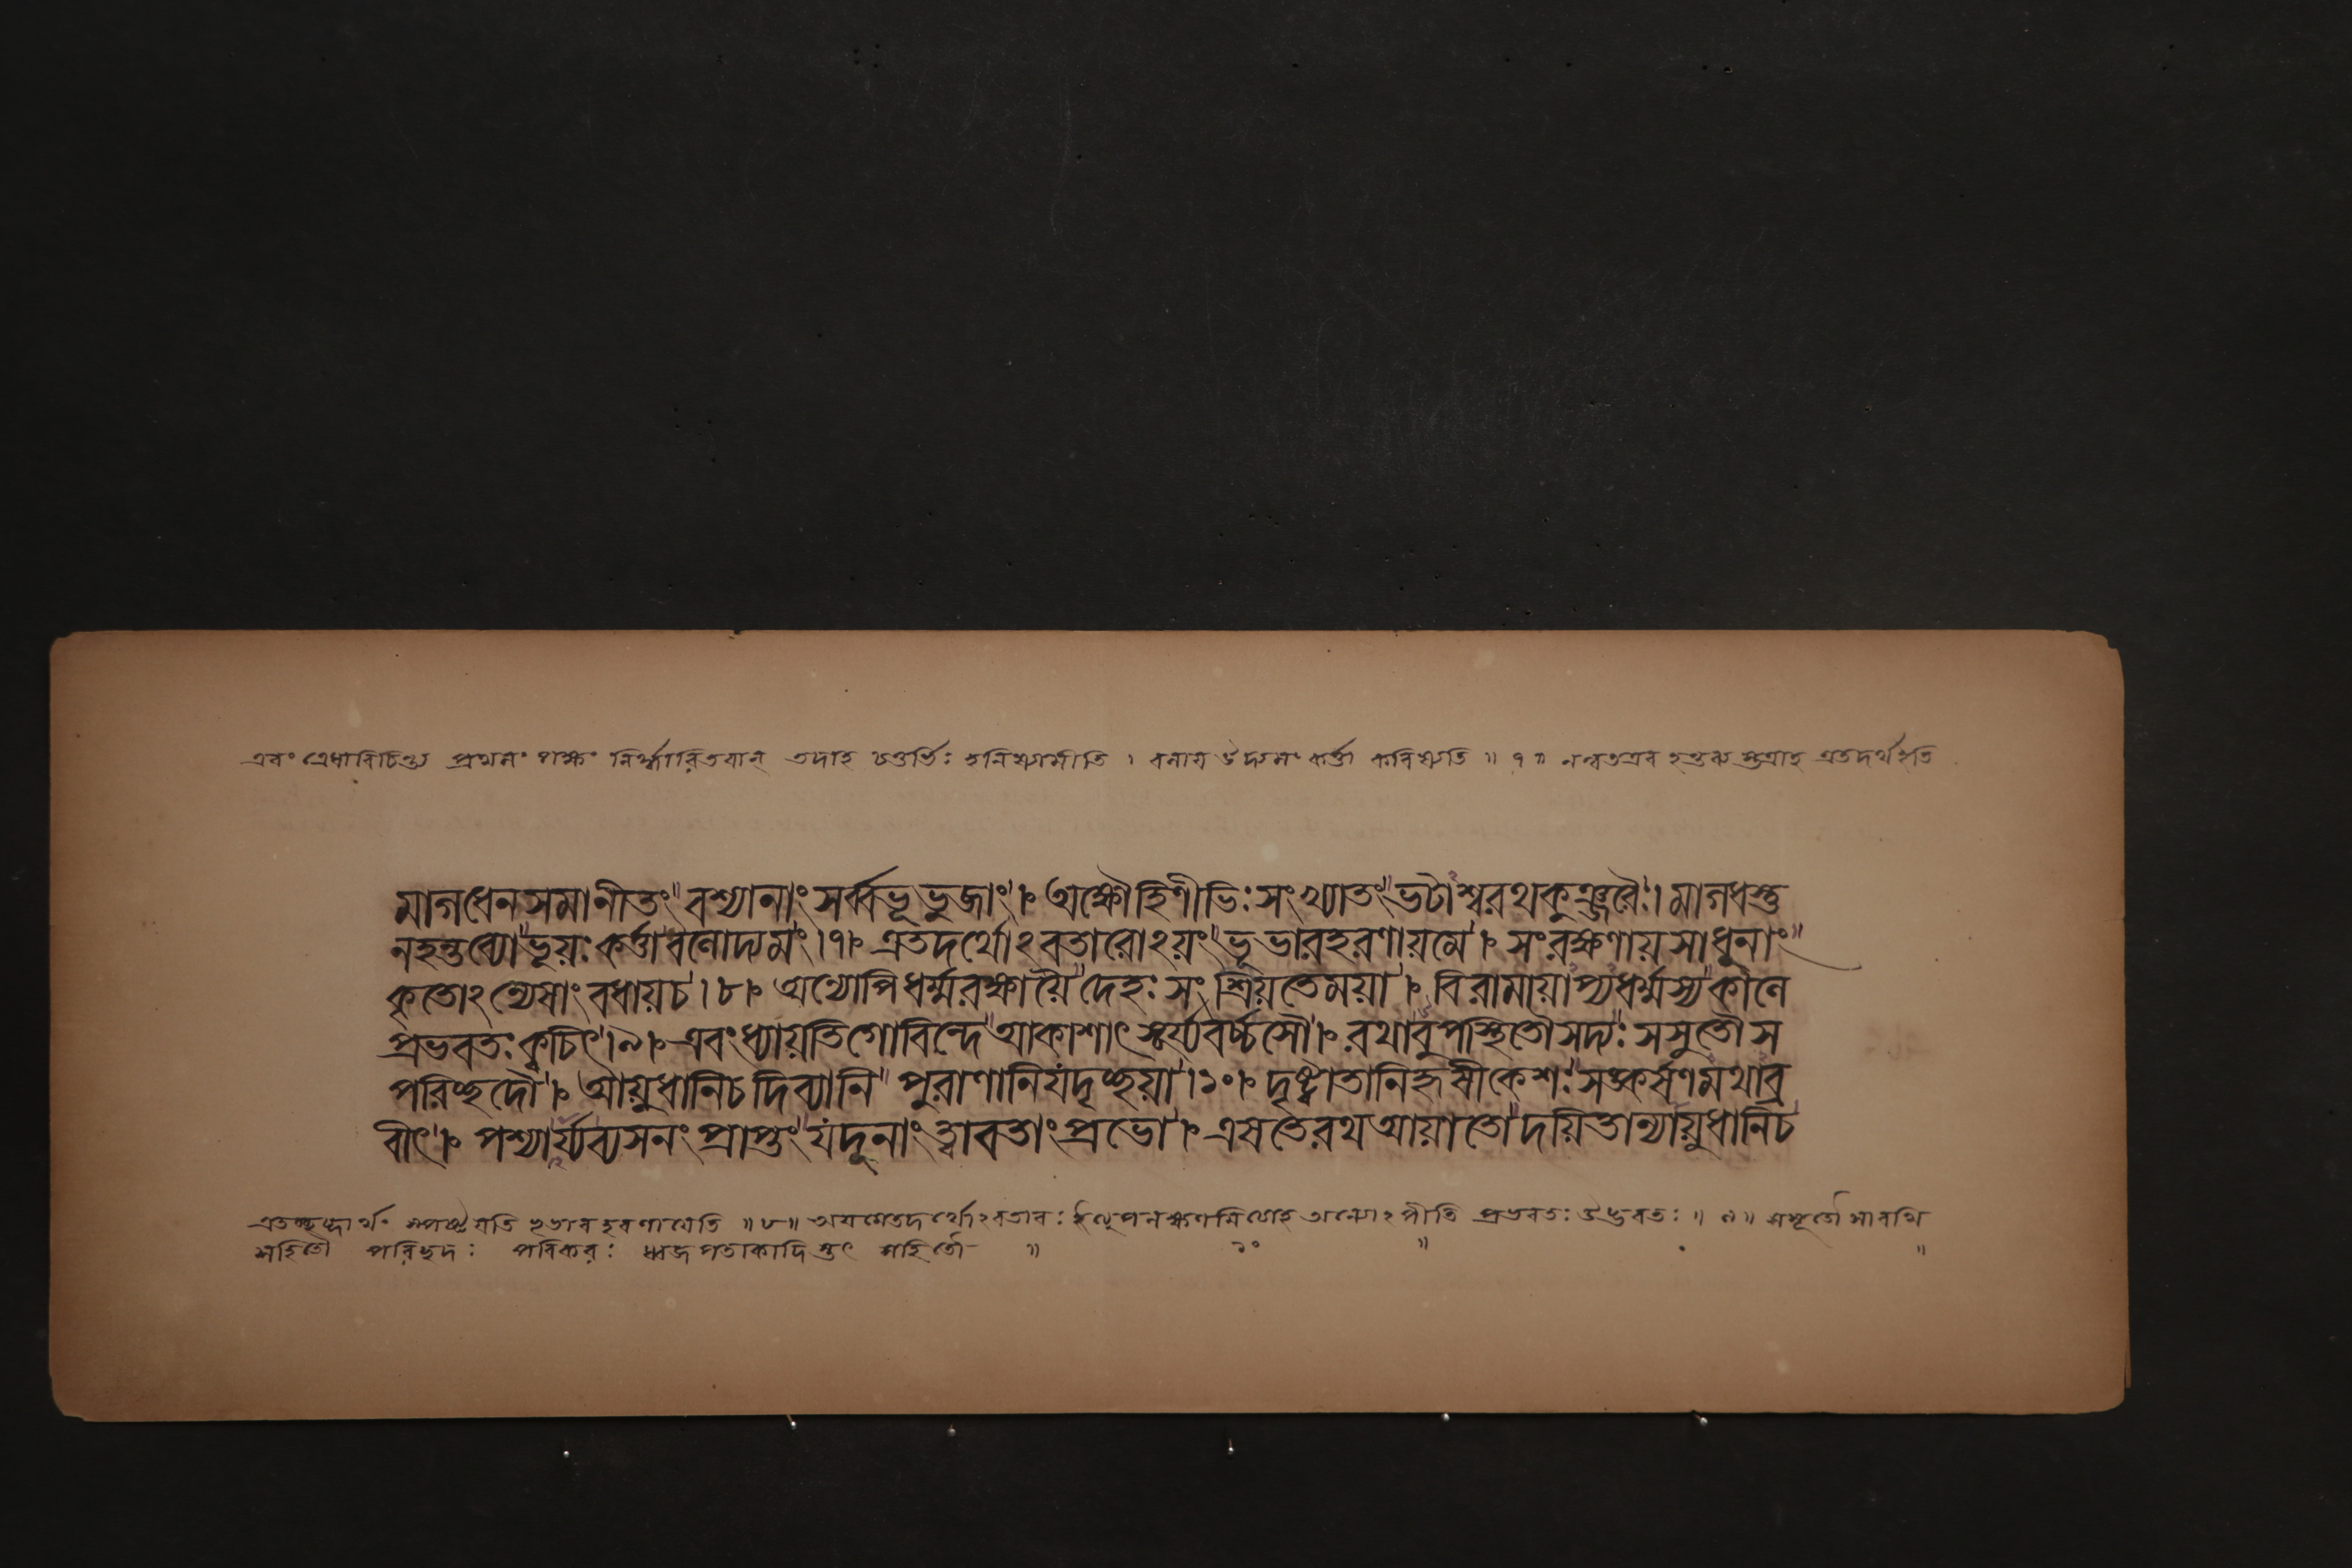 এবং ত্রেধাবিচিন্ত্য প্রথমং পক্ষং নির্দ্ধারিতবান্ তদাহ চতুর্ভিঃ হনিষ্যামীতি । বলায় উদ্যমং কর্ত্তা করিষ্যতি ॥ ৭ ॥ নন্বতএব হন্তব্য স্তত্রাহ এতদর্থইতি
মাগধেনসমানীতং বশ্যানাং সর্ব্বভূভুজাং । অক্ষৌহিণীভিঃ সংখ্যাতং ভটাশ্বরথকুঞ্জরৈঃ । মাগধস্তু
নহন্তব্যোভূয়ঃ কর্ত্তাবলোদ্যমং । ৭ । এতদর্থোঽবতারোঽয়ং ভূভারহরণায়মে । সংরক্ষণায়সাধূনাং
কৃতোঽন্যেষাং বধায়চ । ৮ । অন্যোপিধর্ম্মরক্ষায়ৈ দেহঃ সংভ্রিয়তেময়া । বিরামায়াপ্যধর্ম্মস্যকালে
প্রভবতঃ ক্বচিৎ । ৯ । এবংধ্যায়তিগোবিন্দে আকাশাৎ সূর্য্যবর্চ্চসৌ । রথাবুপস্থিতৌসদ্যঃ সসূতৌস
পরিচ্ছদৌ । আয়ুধানিচদিব্যানি পুরাণানিযদৃচ্ছয়া । ১০ । দৃষ্ট্বাতানিহৃষীকেশঃ সঙ্কর্ষণমথাব্র
বীৎ । পশ্যার্য্যব্যসনং প্রাপ্তং যদূনাং ত্বাবতাং প্রভো । এষতেরথআয়াতোদয়িতান্যায়ুধানিচ
প্রপঞ্চয়তি ভূভারহরণায়েতি ॥ ৮ ॥ অন্যোঽপীতি প্রভবতঃ উদ্ভবতঃ ॥ ৯ ॥ সসূতৌ সারথি
সহিতৌ পরিচ্ছদঃ পরিকরঃ ধ্বজপতাকাদি স্তৎ সহিতৌ ॥ ১০ ॥ ॥